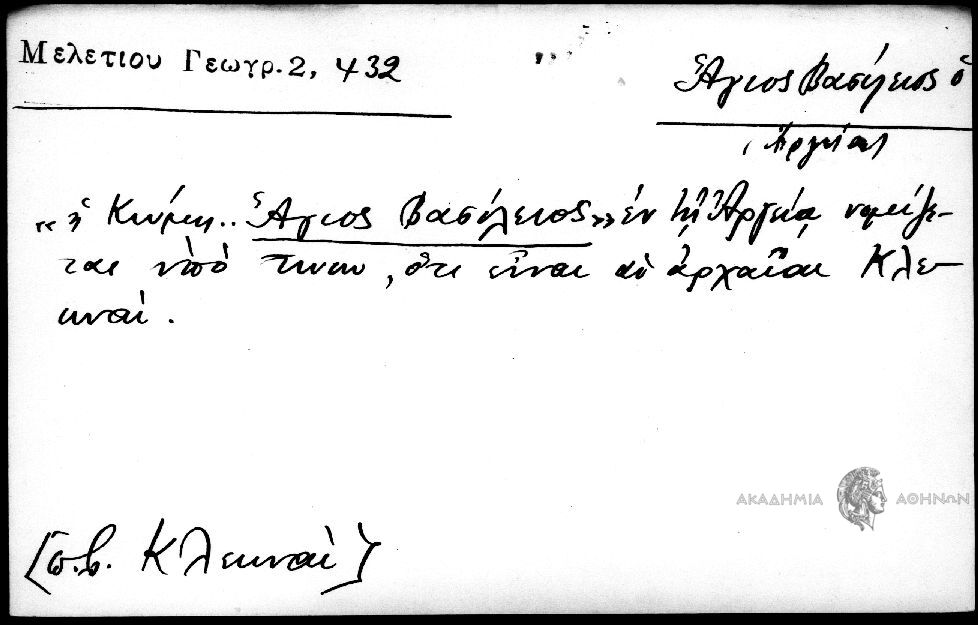 Μελετιου Γεωγρ. 2, 432
Ἅγιος Βασίλειος ὁ
Ἀργείας
«ἡ Κώμη.. Ἅγιος Βασίλειος» ἐν τῇ Ἀργείᾳ νομίζε-
ται ὑπό τινων, ὅτι εἶναι αἱ ἀρχαῖαι Κλε-
ωναί.
ΑΚΑΔΗΜΙΑ ΑΘΗΝΩΝ
[σ.β. Κλεωναί]